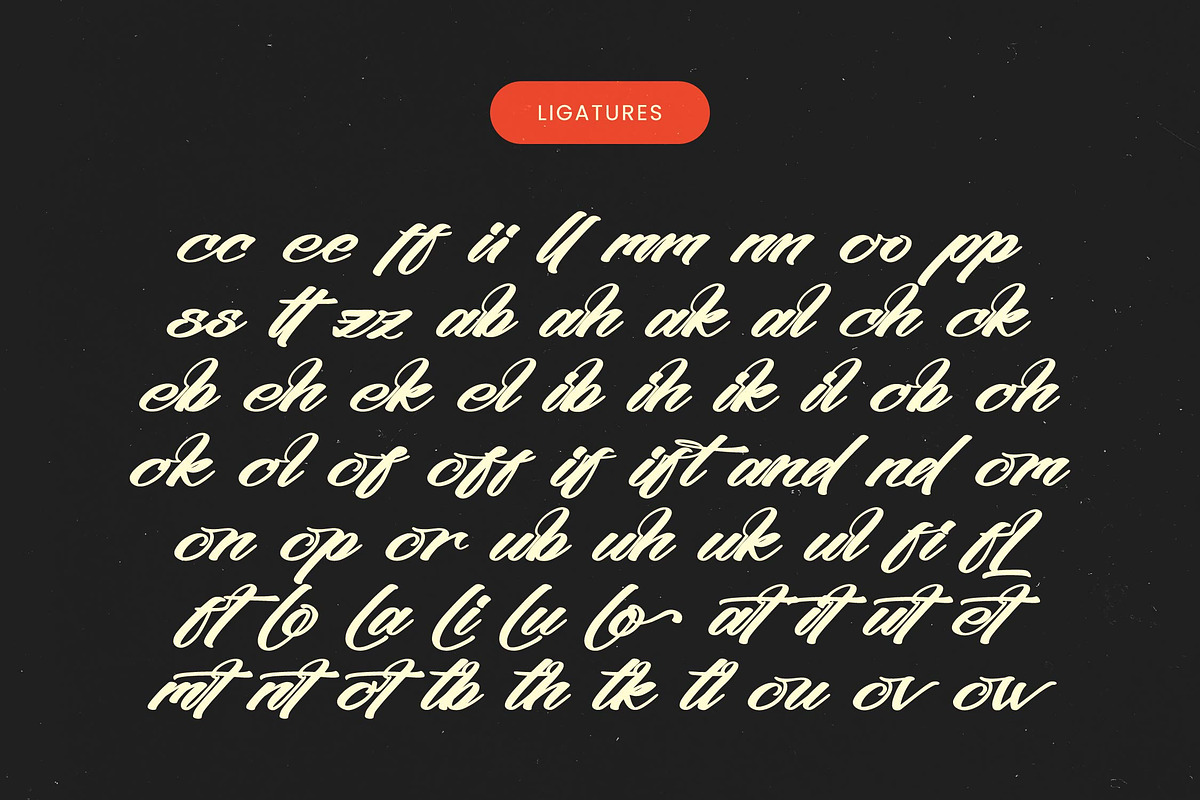 LIGATURES
cc ee ff ii ll mm nn oo pp
ss tt zz ab ah ak al ch ck
eb eh ek el ib ih ik il ob oh
ok ol of off if ift and nd om
on op or ub uh uk ul fi fl
ft lo la li lu lo at it ut et
mt nt ot tb th tk tl ou ov ow